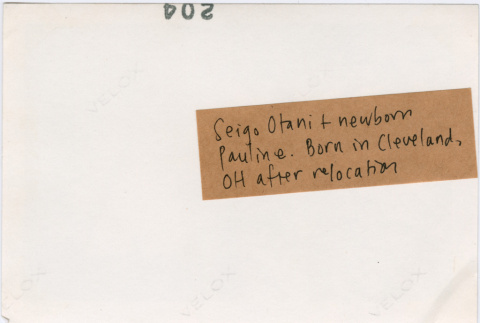 204
VELOX
VELOX
Seigo Otani + newborn
Pauline. Born in Cleveland,
OH after relocation
VELOX
VELOX
VELOX